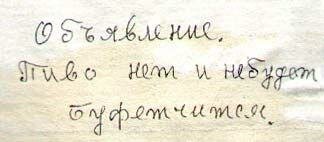 Объявление.
Пиво нет и небудет
Буфетчится.